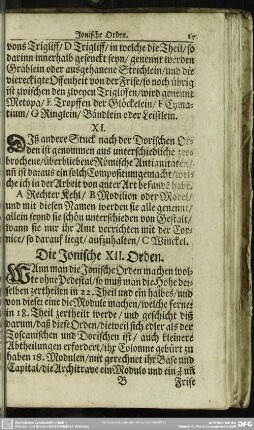 Jonische Orden. 17
vons Trigliff/ D Trigliff/ in welche die Theil/ so
darinn innerhalb gesenckt seyn/ genennt werden
Gräblein oder ausgehauene Strichlein/ und die
viereckigte Offenheit von der Frise/ so noch übrig
ist zwischen den zweyen Trigliffen/ wird genennt
Metopa/ E Tropffen der Glöckelein/ F Cyma-
tium/ G Ringlein/ Bändlein oder Leistlein.
XI.
Diß andere Stuck nach der Dorischen Or-
den ist genommen aus unterschiedliche zer-
brochene/ überbliebene Römische Antiquitäten/
un̄ ist daraus ein solch Compositum gemacht/ wel-
che ich in der Arbeit von guter Art befundē habe.
A Rechter Kehl/ B Modilion oder Model/
und mit diesen Namen werden sie alle genennt/
allein seynd sie schön unterschieden von Gestalt/
wann sie nur ihr Amt verrichten mit der Cor-
nice/ so darauf liegt/ aufzuhalten/ C Winckel.
Die Jonische XII. Orden.
Wann man die Jonische Orden machen wol-
te ohne Pedestal/ so muß man die Höhe der-
selben zertheilen in 22. Theil und ein halbes/ und
von diese eine die Module machen/ welche ferner
in 18. Theil zertheilt werde/ und geschicht diß
darum/ daß diese Orden/ dieweil sich edler als der
Toscanischen und Dorischen ist/ auch kleinere
Abtheilungen erfordert/ ihr Colomne gebürt zu
haben 18. Modulen/ mit gerechnet ihr Base und
Capital/ die Architrave ein Modul und ein
B Frise